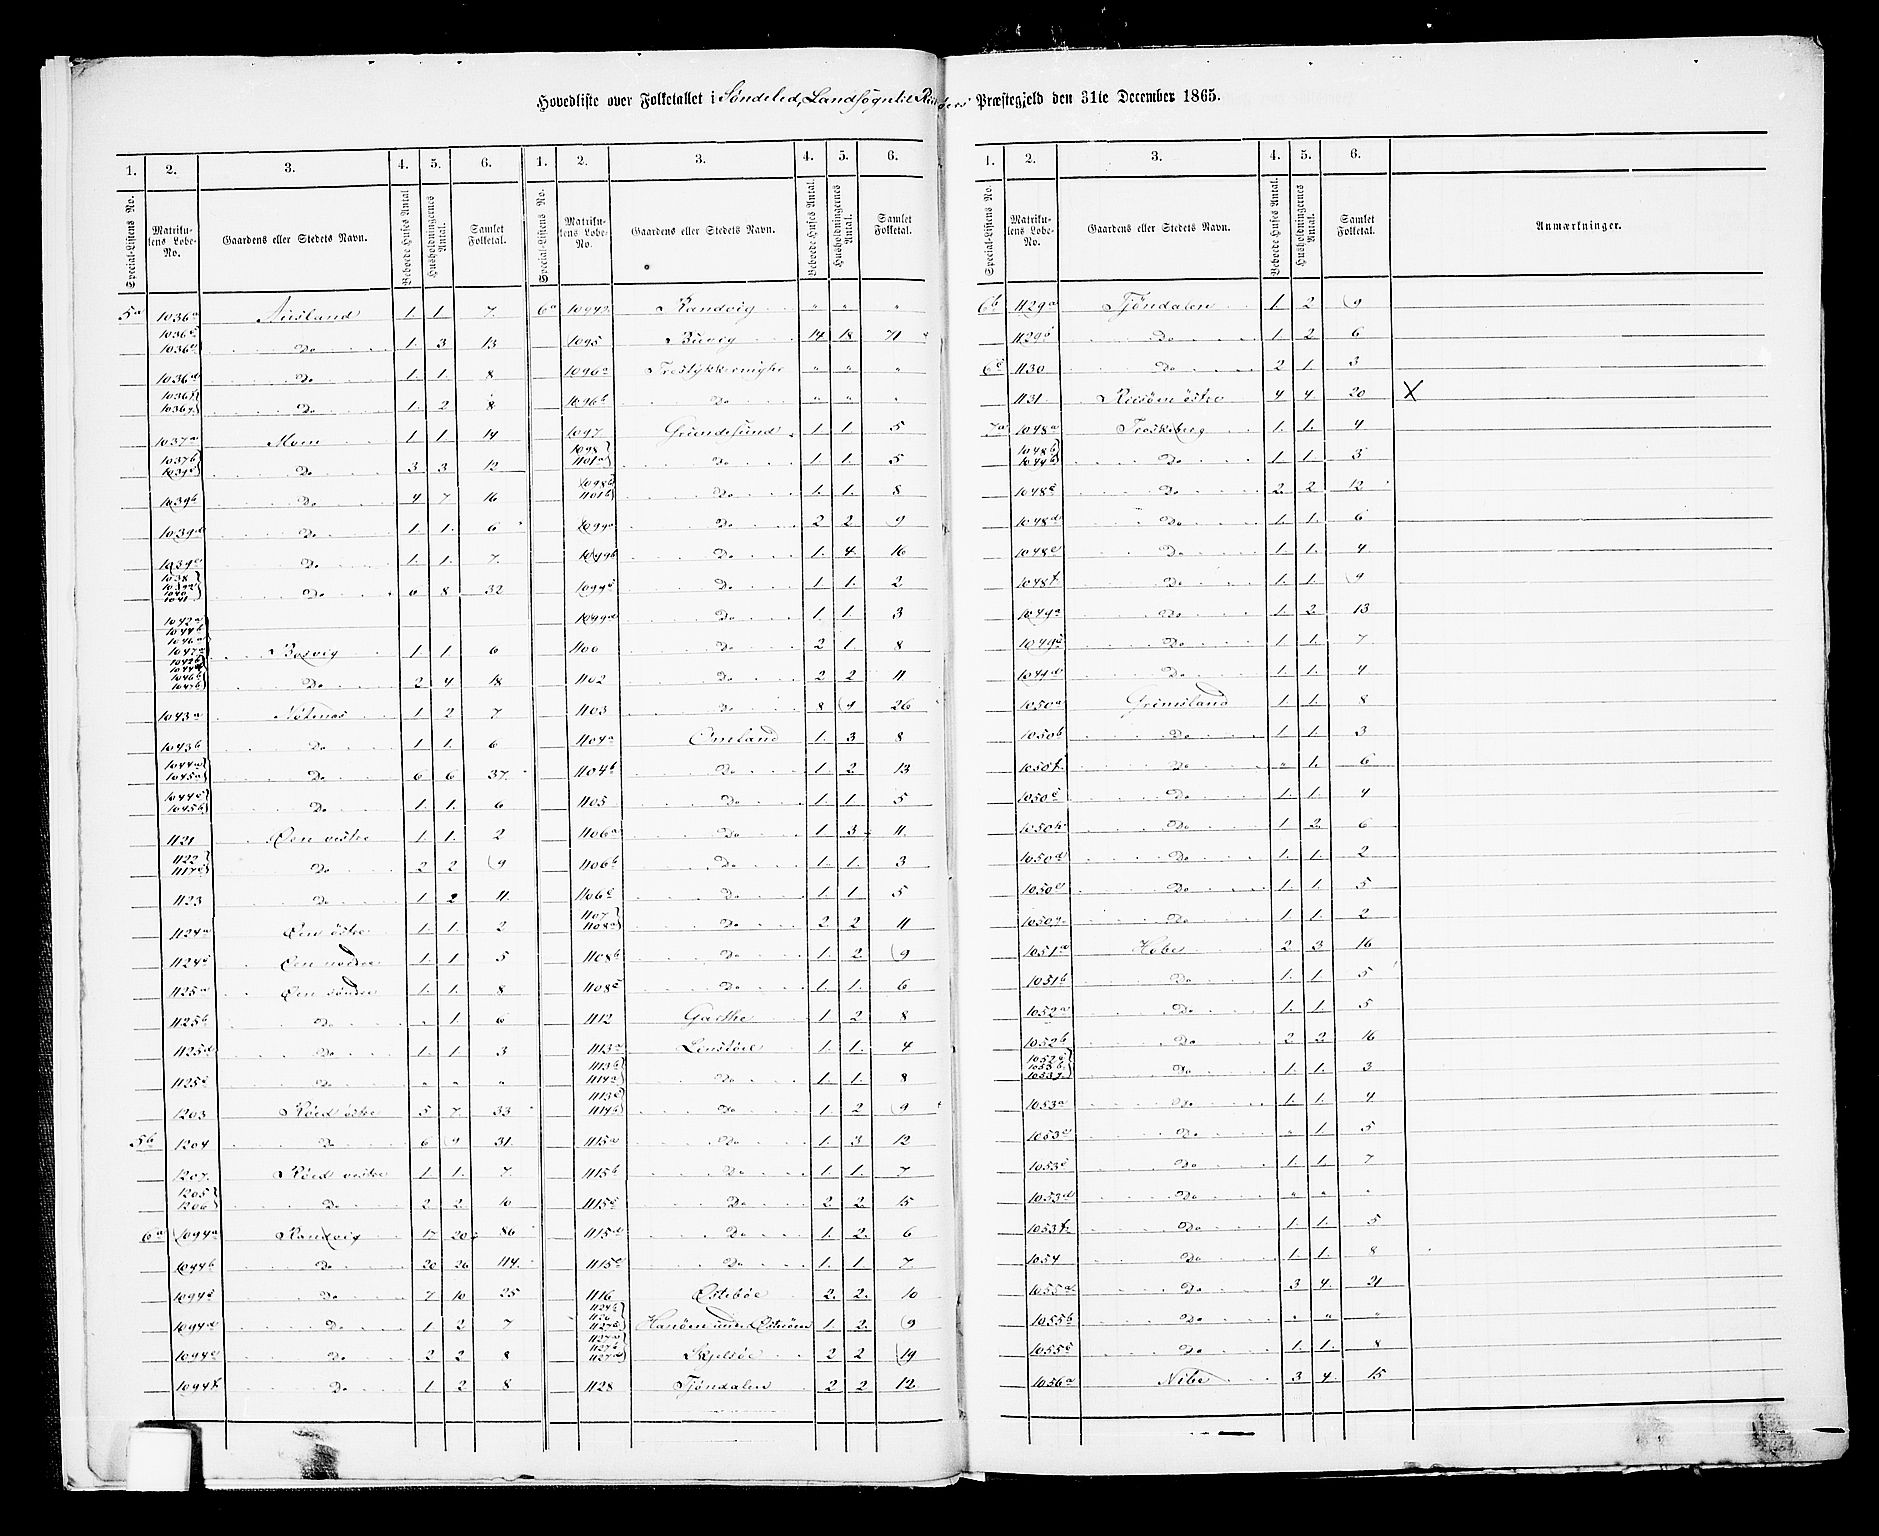 Hovedliste over Folketallet i Søndeled, Landsogn til Risöers Præstegjeld den 31te December 1865.
1. 2. 3. 4. 5. 6. 1. 2. 3. 4. 5. 6.
Special-Listens No. Matrikulens Løbe-No. Gaardens eller Stedets Navn. Beboede Huses Antal Husholdningernes Antal. Samlet Folketal. Special-Listens No. Matrikulens Løbe-No. Gaardens eller Stedets Navn. Beboede Huses Antal. Husholdningernes Antal. Samlet Folketal.
5a 1036a 1. 1. 7.
1036c Do 1. 3 13
1036d Do 1. 1. 8
1036f 1036g Do 1. 2 8
1037a Moen 1 1 14
1037b 1039c Do 3 3 12
1039b Do 4 7 16
1039d Do 1. 1. 6
1039e Do 1. 1. 7.
1038 1039a 1040 1041 Do 6 8 32
1042a 1044b 1046a 1047a Bosvig 1. 1. 6
1042b 1046b 1047b Do 2 4 18
1043a Nötenes 1 2 7
1043b Do 1 1. 6
1044a 1045a Do 6 6 37.
1044c 1045b Do 1. 1. 6
1121 Öen vestre 1. 1. 2
1122 1117c Do 2 2 9
1123 Do 1. 2 11.
1124a Öen östre 1. 1. 2
1124c Öen nordre 1 1 5
1125a Öen söndre 1. 1. 8
1125b Do 1 6
1125d Do 1. 1 3
1125c Do " " "
1203 Röed östre 5 7. 33
5b 1204 Do 6 9 31.
1207. Röed vestre 1 1. 7
1205 1206 Do 2 2 10
6a 1094a Randvig 17 20 86
1094b Do 20 26 114.
1094c Do 7 10 25
1094d Do 1 2 7
1094e Do 2 2 8
1094f Do 1 2 8
6a 1094g Randvig " " "
1095 Buvig 14 18 71
1096a " " "
1096b Do " " "
1097 Grundesund 1 1. 5
1098 1101a Do 1 1. 5
1098b 1101b Do 1. 1. 8
1099a Do 2 2 9
1099b Do 1. 4. 16
1099c Do 1 1. 2
1099d Do 1 1. 3
1100 Do 2 1. 8
1102 Do 2 2 11
1103 Do 8 9 26
1104a Omland 1. 3 8
1104b Do 1. 2 13
1105 Do 1. 1. 5
1106a Do 1 3 11.
1106b Do 1. 1. 3
1106c Do 1 1 5
1107 1108a Do 2 2 11
1108b Do 1. 2 9
1108c Do 1. 1. 6
1112 Garthe 1 2 8
1113a Lenstöle 1. 1. 4
1113b 1114a Do 1. 1. 8
1113c 1114b Do 1. 2 9
1115a Do 1. 3 12
1115b Do 1. 1. 7
1115c Do 2 2. 15
1115d Do 1. 2. 6
1115e Do 1. 1 7
1116 Östeböe 2. 2. 10
1124b 1126 1127b Havöen under Österöen 1 2. 9
1127a 1127c 1127d Skjelsöe 2 2 19
1128 Tjöndalen 2 2 12
1. 2. 3. 4. 5. 6.
Special-Listens No. Matrikulens Løbe-No. Gaardens eller Stedets Navn. Beboede Huses Antal. Husholdningernes Antal. Samlet Folketal. Anmærkninger.
6b 1129a Tjöndalen 1. 2 9
1129b Do 1 2 6
6c 1130 Do 2 1 3
1131 Risöen östre 4 4 20 X
7a 1048a Troskberg 1. 1 4
1048b 1044b Do 1. 1. 3
1048c Do 2. 2 12
1048d Do 1. 1. 6
1048e Do 1. 1. 4
1048f Do 1. 1. 9
1049a Do 1. 2. 13
1049c Do 1. 1. 7
1049d Do 1. 1. 4
1050a Grimsland 1. 1. 8
1050b Do 1. 1. 3
1050f Do " 1. 6
1050c Do 1. 1. 4
1050h Do 1 2. 6
1050d Do 1. 1. 2
1050e Do 1. 1. 5
1050g Do 1. 1. 2
1051a Hobe 2. 3. 16
1051b Do 1. 1. 5
1052a Do 1. 1. 5
1052b Do 2 2. 16
1052c 1053b 1053g Do 1. 1. 3
1053a Do 1. 1. 4
1053e Do " 1 5
1053c Do 1. 1. 7
1053d Do " " "
1053f Do 1. 1. 5
1054 Do 1. 1. 8
1055a Do 3 4. 21
1055b Do " " "
1055c Do 1. 1. 8
1056a Nibe 3 4. 15